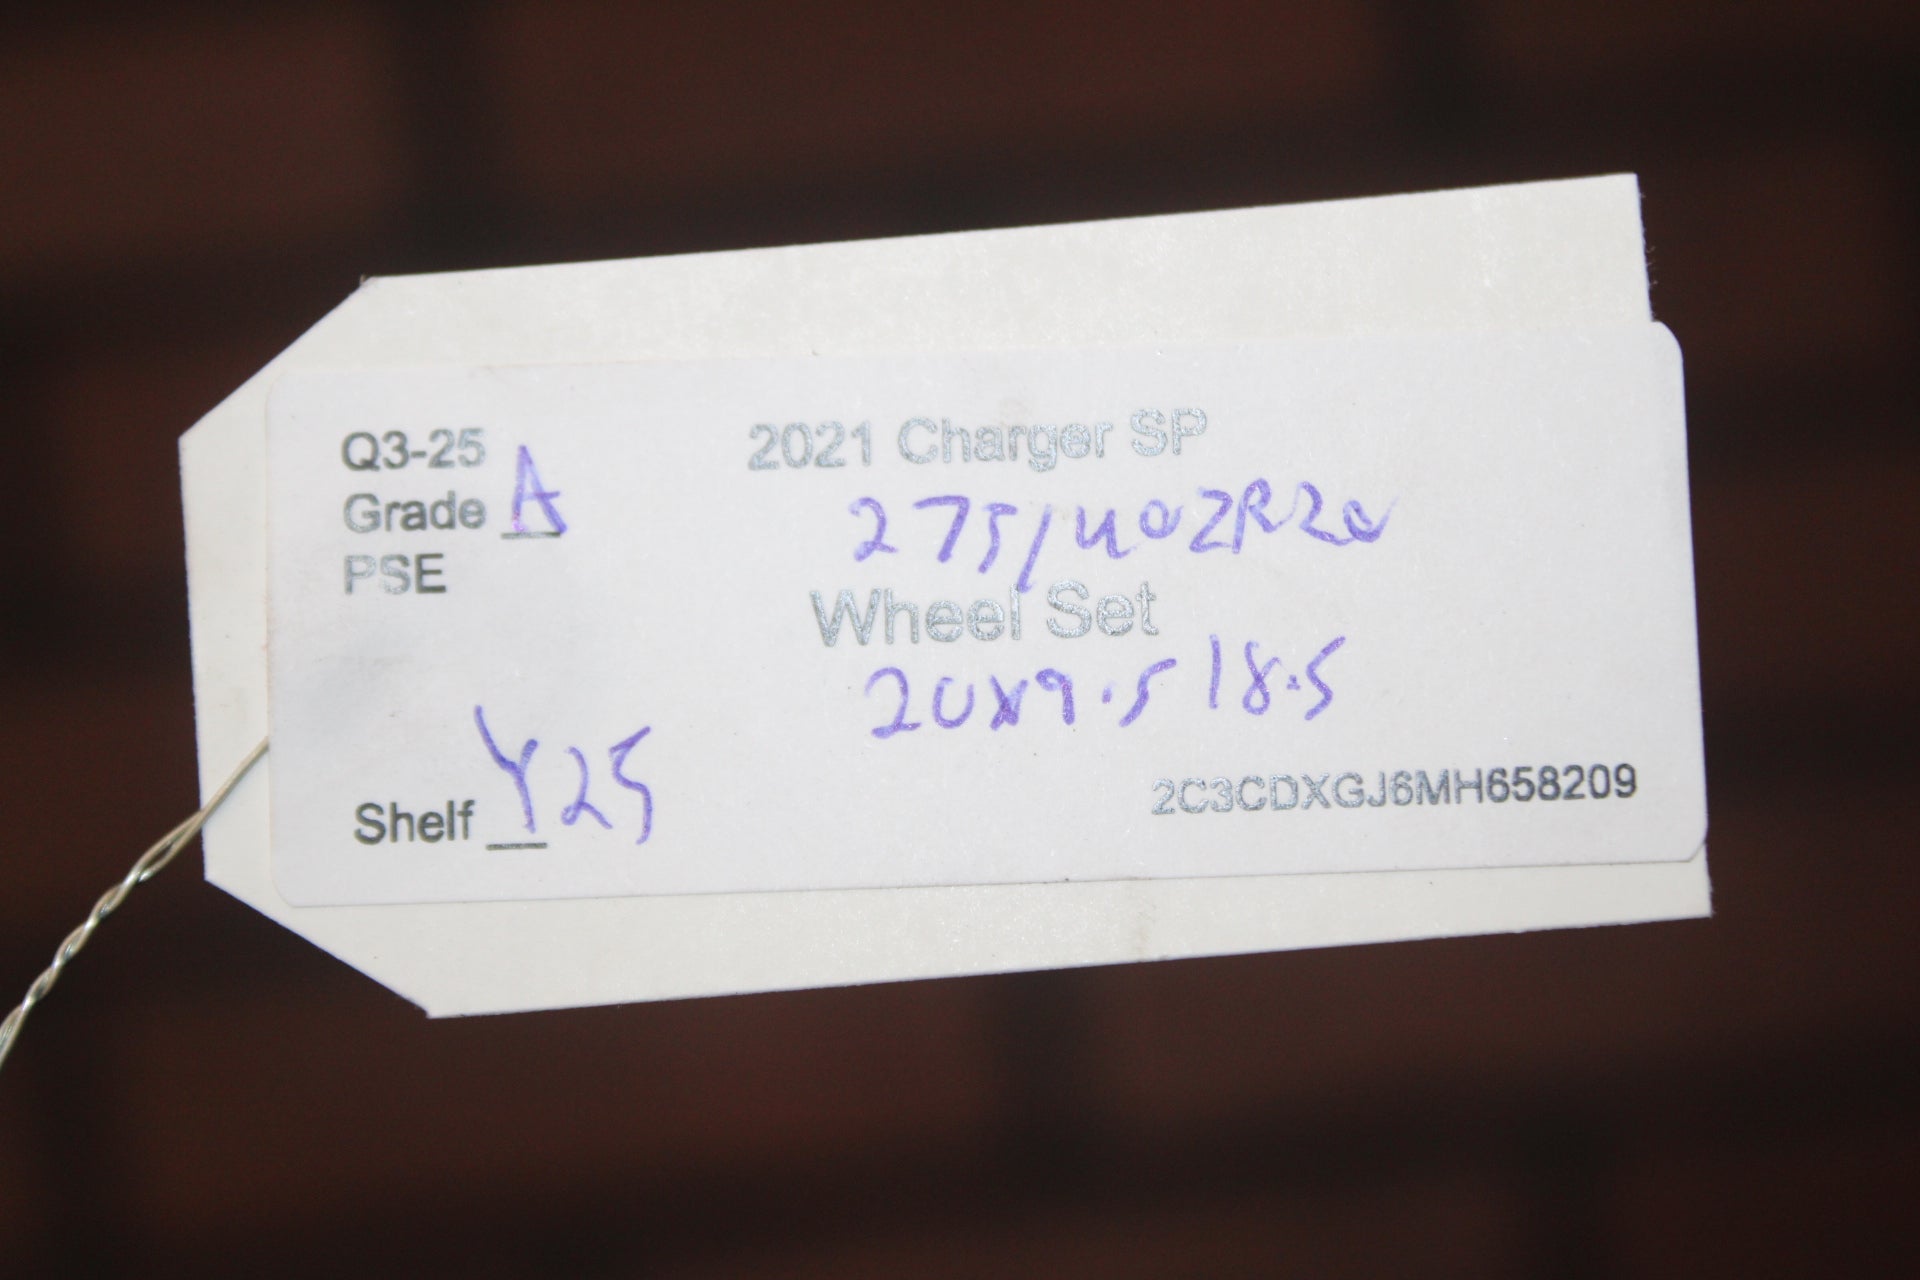 Q3-25
Grade A
PSE
2021 Charger SP
275/40ZR20
Wheel Set
20x9.5 18.5
Shelf Y25
2C3CDXGJ6MH658209